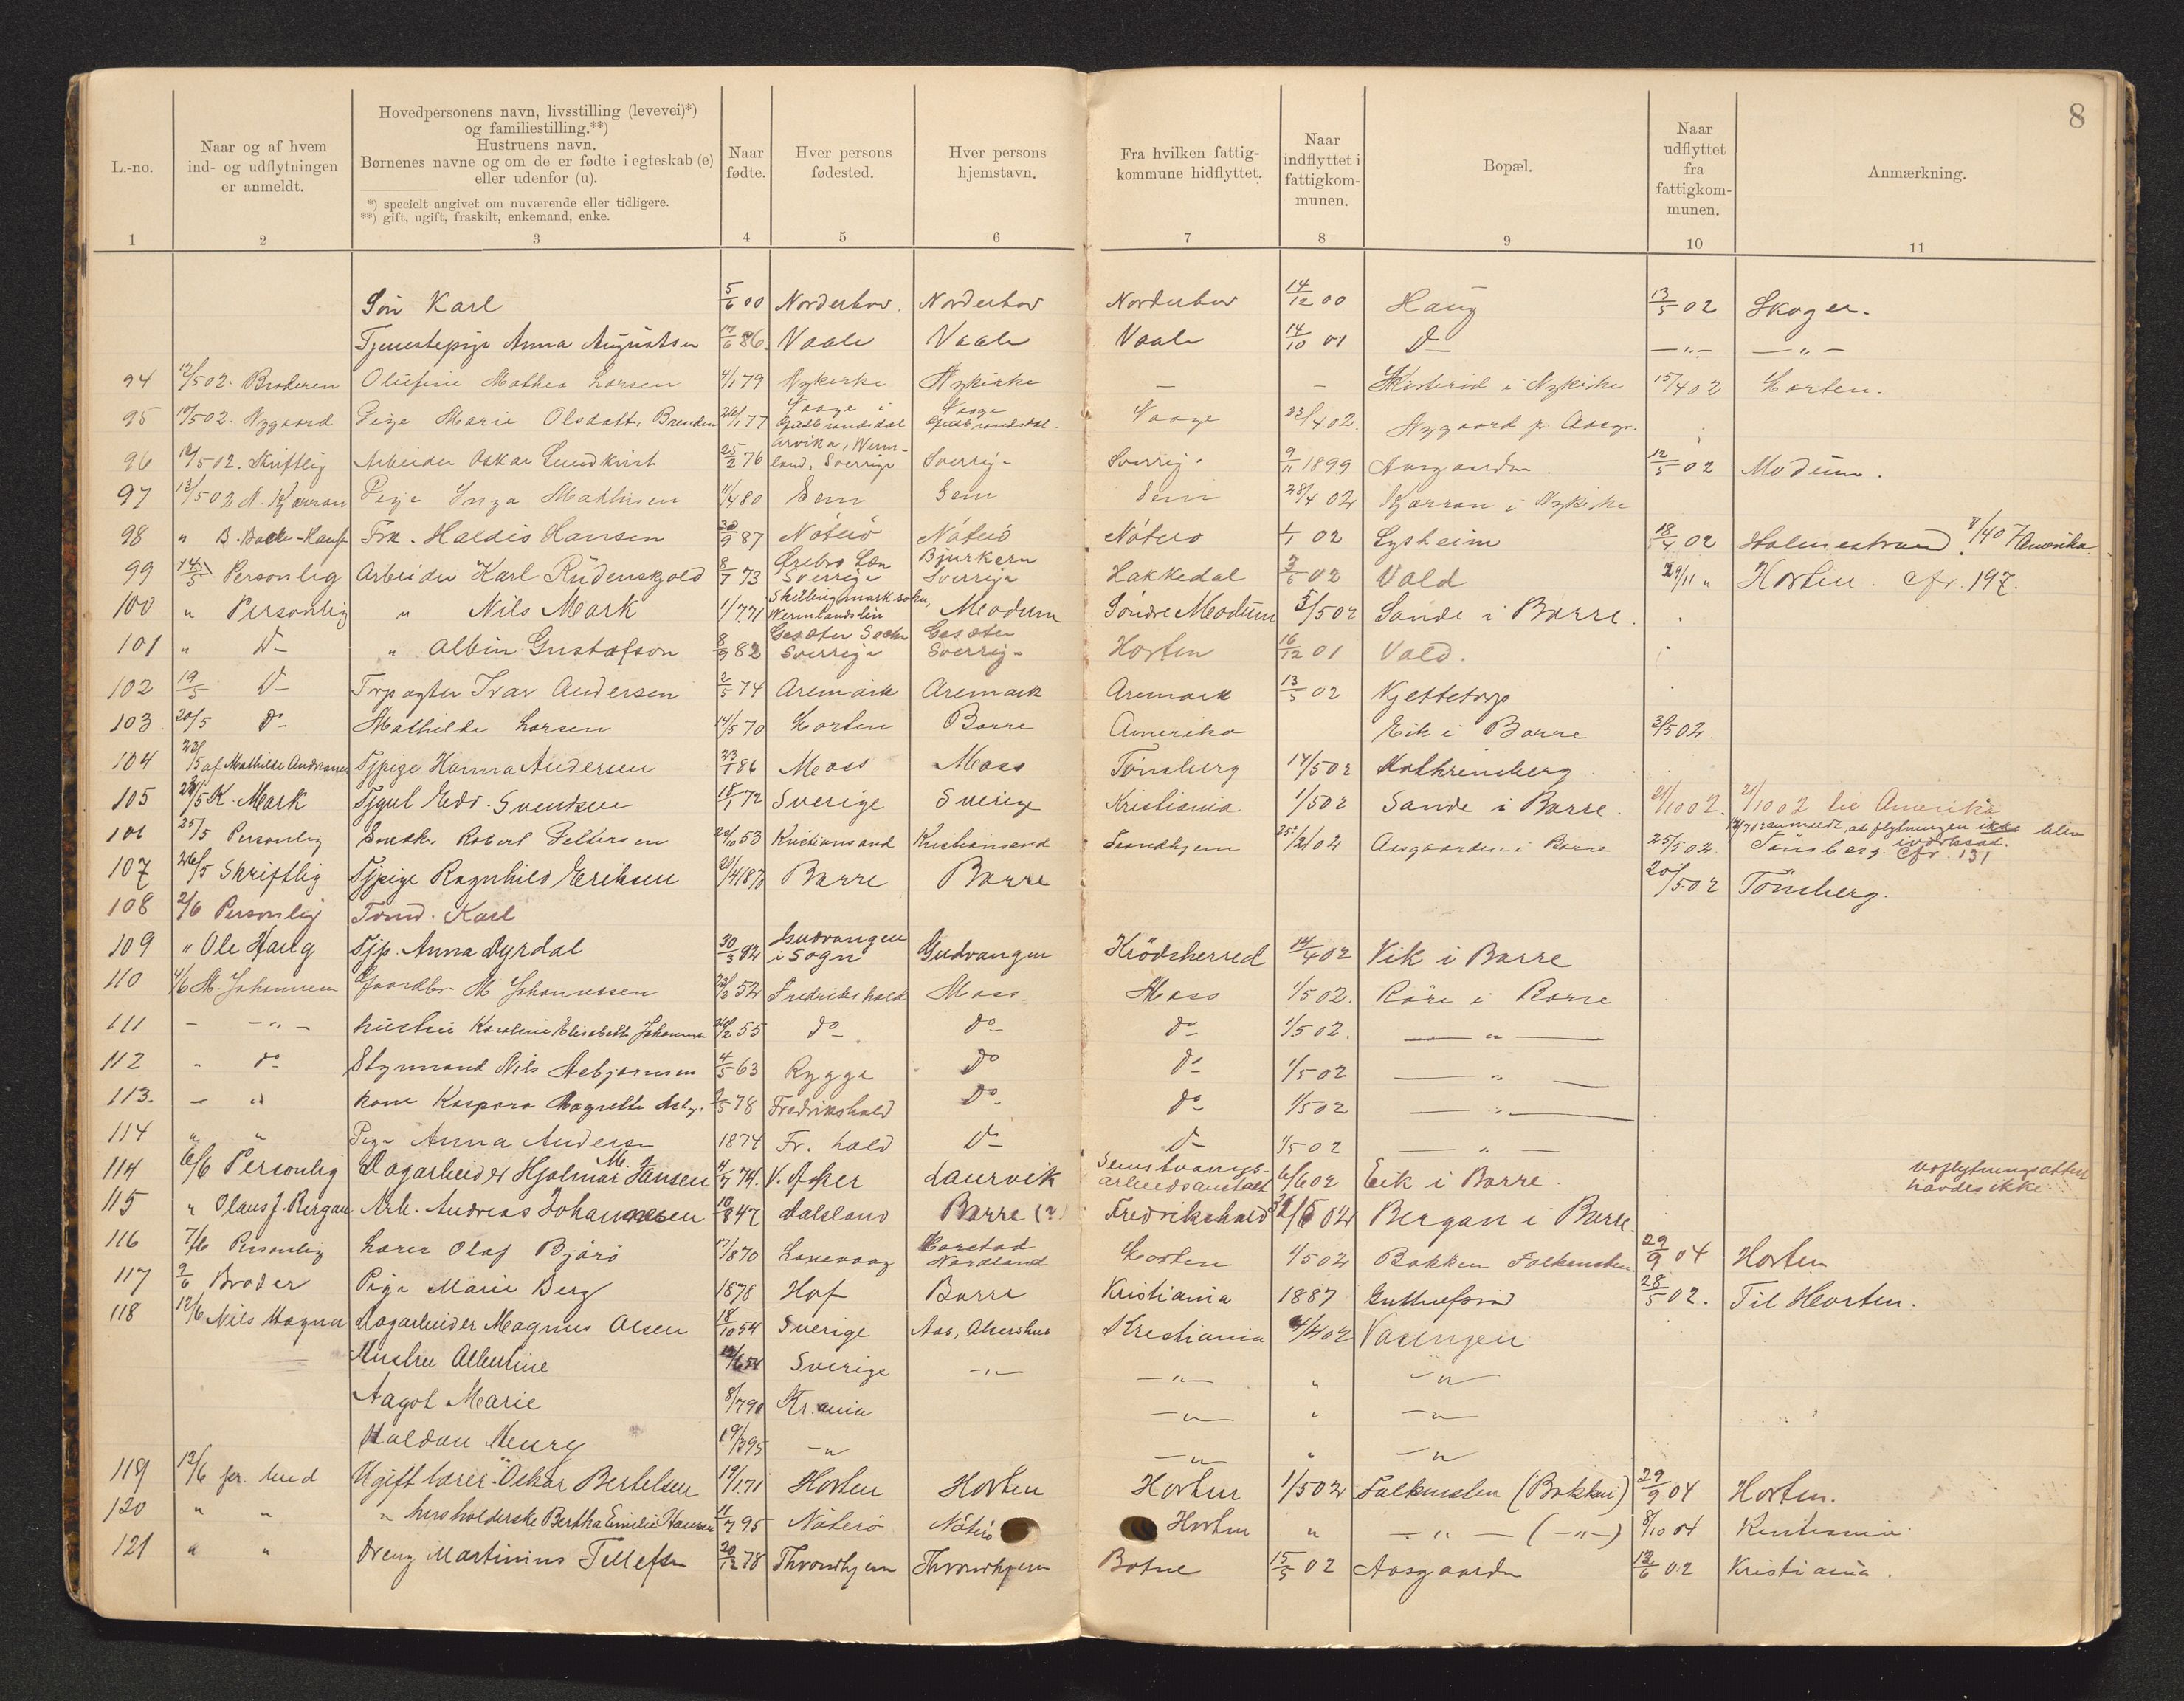 8
L.-no.
Naar og af hvem
ind- og udflytningen
er anmeldt.
Hovedpersonens navn, livsstilling (levevei)*)
og familiestilling.**)
Hustruens navn.
Børnenes navne og om de er fødte i egteskab (e)
eller udenfor (u).
*) specielt angivet om nuværende eller tidligere.
**) gift, ugift, fraskilt, enkemand, enke.
Naar
fødte.
Hver persons
fødested.
Hver persons
hjemstavn.
Fra hvilken fattig-
kommune hidflyttet.
Naar
indflyttet i
fattigkom-
munen.
Bopæl.
Naar
udflyttet
fra
fattigkom-
munen.
Anmærkning.
1 2 3 4 5 6 7 8 9 10 11
Søn Karl 5/6 00 Norderhov. Norderhov Norderhov 14/12 00 Haug 13/5 02 Skoger.
Tjenestepige Anna Augustsen 86. Vaale Vaale Vaale 14/10 01 Do — " — — " —
94 12/5 02. Broderen Olufine Mathea Larsen 4/1 79 Nykirke Nykirke — — i Nykirke 15/4 02 Horten.
95 12/5 02. Nygaard Pige Marie Olsdatt. Brenden 26/1 77 Vaage i Gudbrandsdal Vaage Gudbrandsdal. Vaage 22/4 02. Nygaard p. Aasgr.
96 12/5 02. Skriftlig Arbeider Oskar Lundkvist 25/2 76 Arvika, Werm-land, Sverrige Sverrig- Sverrig- 9/11 1899 Aasgaarden. 12/5 02 Modum.
97 13/5 02 N. Kjærran Pige Inga Mathisen 11/4 80 Sem Sem Sem 28/4 02 Kjærran i Nykirke
98 " B. Bache-Hansen Frk. Haldis Hansen 30/9 87 Nøterø Nøterø Nøterø 1/1 02 Lysheim 18/4 02 Holmestrand. 8/4 07 Amerika.
99 14/5 Personlig Arbeider Karl Rüdenskjold 8/7 73 Ørebro Län Sverrige Bjurkern Sverrige Hakkedal 3/5 02 Vold 29/11 " Horten. cfr. 197.
100 " Personlig " Nils Mark 1/7 71 Skillingmark sokn, Wermlandslän Modum Søndre Modum 5/5 02 Sande i Borre.
101 " Do " Albin Gustafson 8/9 82 Gesäter Sockn Sverrige Gesäter Sverrig- Horten 16/12 01 Vold.
102 19/5 Do Forpagter Ivar Andersen 2/5 74 Aremark Aremark Aremark 13/5 02 Kjettetorp
103 20/5 Do Mathilde Larsen 14/5 70 Horten Borre Amerika Eik i Borre 3/5 02.
104 23/5 af Mathilde Andersen Tjpige Hanna Andersen 86 Moss Moss Tønsberg 17/5 02 Kathrineberg
105 23/5 K. Mark Tjgut Edv. Svendsen 18/1 72 Sverige Sverige Kristiania. 1/5 02 Sande i Borre. 21/10 02. 21/10 02 til Amerika
12/7 12 anmeldt, at flytningen ikke blev iværksat.
106 25/5 Personlig Snedk. Robert Pettersen 22/10 53 Kristiansand Kristiansand Trondhjem 25/2 02 Aasgaarden i Borre 25/5 02. Tønsberg. cfr. 131
107 26/5 Skriftlig Tjpige Ragnhild Eriksen 21/4 1870 Borre Borre 20/5 02 Tønsberg.
108 2/6 Personlig Tømd. Karl
109 " Ole Haug Tjp. Anna Dyrdal 30/3 82 Gudvangen i Sogn Gudvangen Krødsherred 14/4 02 Vik i Borre
110 4/6 M. Johannesen Gaardbr. M Johannesen 52 Fredrikshald Moss Moss 1/5 02. Røre i Borre
111 — — " — hustru Karoline Elisabeth Johannesen 55 do do do 1/5 02. — " —
112 " do Styrmand Nils Asbjørnsen 4/5 63 Rygge do do 1/5 02 — " —
113. — " kone Kaspara Magrethe Asbj. 2/5 78 Fredrikshald Do do 1/5 02 — " —
114 " " Pige Anna Andersen 1874 Fr. hald Do Do 1/5 02 — " —
114 6/6 Personlig Dagarbeider Hjalmar M. Hansen 4/7 74. V. Aker Laurvik Sems tvangs-arbeidsanstalt 6/6 02 Eik i Borre. Udflytningsattest havdes ikke
115 " Olaus J. Bergan Arb. Andreas Johannesen 10/8 47 Dalsland Borre (?) Fredrikshald 02 Bergan i Borre.
116 7/6 Personlig Lærer Olaf Bjørø 7/8 70 Harstad Nordland Horten 1/5 02 Bakken Falkensten 29/9 04 Horten
117 9/6 Broder Pige Marie Berg 1878 Hof Borre Kristiania 1887 28/5 02. Til Horten.
118 12/6 Nils Magnus Dagarbeider Magnus Olsen 18/10 54 Sverige Aas, Akershus Kristiania 4/4 02 Vasengen
Hustru Albertine 54 Sverige — " — — " — " — " —
Aagot Marie 8/7 90 Kr.ania — " — " — " —
Haldan Henry 19/3 95 — " — — " — " — " —
119 13/6 pr. bud Ugift lærer Oskar Bertelsen 19/1 71 Horten Horten Horten 1/5 02 Falkensten (Bakken) 29/9 04 Horten.
120 " " " husholderske Bertha Emilie Hansen 11/7 95 Nøterø Nøterø Horten " — " — (— " —) 8/10 04 Kristiania.
121 " " Dreng Martinius Tellefsen 20/12 78 Throndhjem Throndhjem Botne 15/5 02 Aasgaarden 12/6 02 Kristiania.